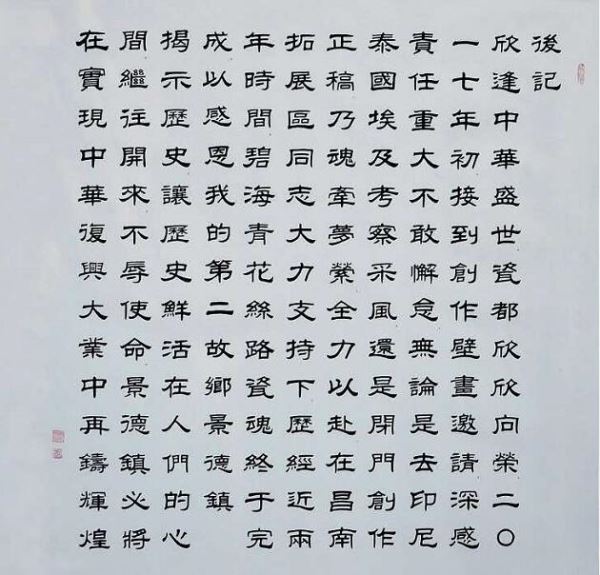 後記
欣逢中華盛世瓷都欣欣向榮二〇
一七年初接到創作壁畫邀請深感
責任重大不敢懈怠無論是去印尼
泰國埃及考察采風還是閉門創作
正稿乃魂牽夢縈全力以赴在昌南
拓展區同志大力支持下歷經近兩
年時間碧海青花絲路瓷魂終于完
成以感恩我的第二故鄉景德鎮
揭示歷史讓歷史鮮活在人們的心
間繼往開來不辱使命景德鎮必將
在實現中華復興大業中再鑄輝煌